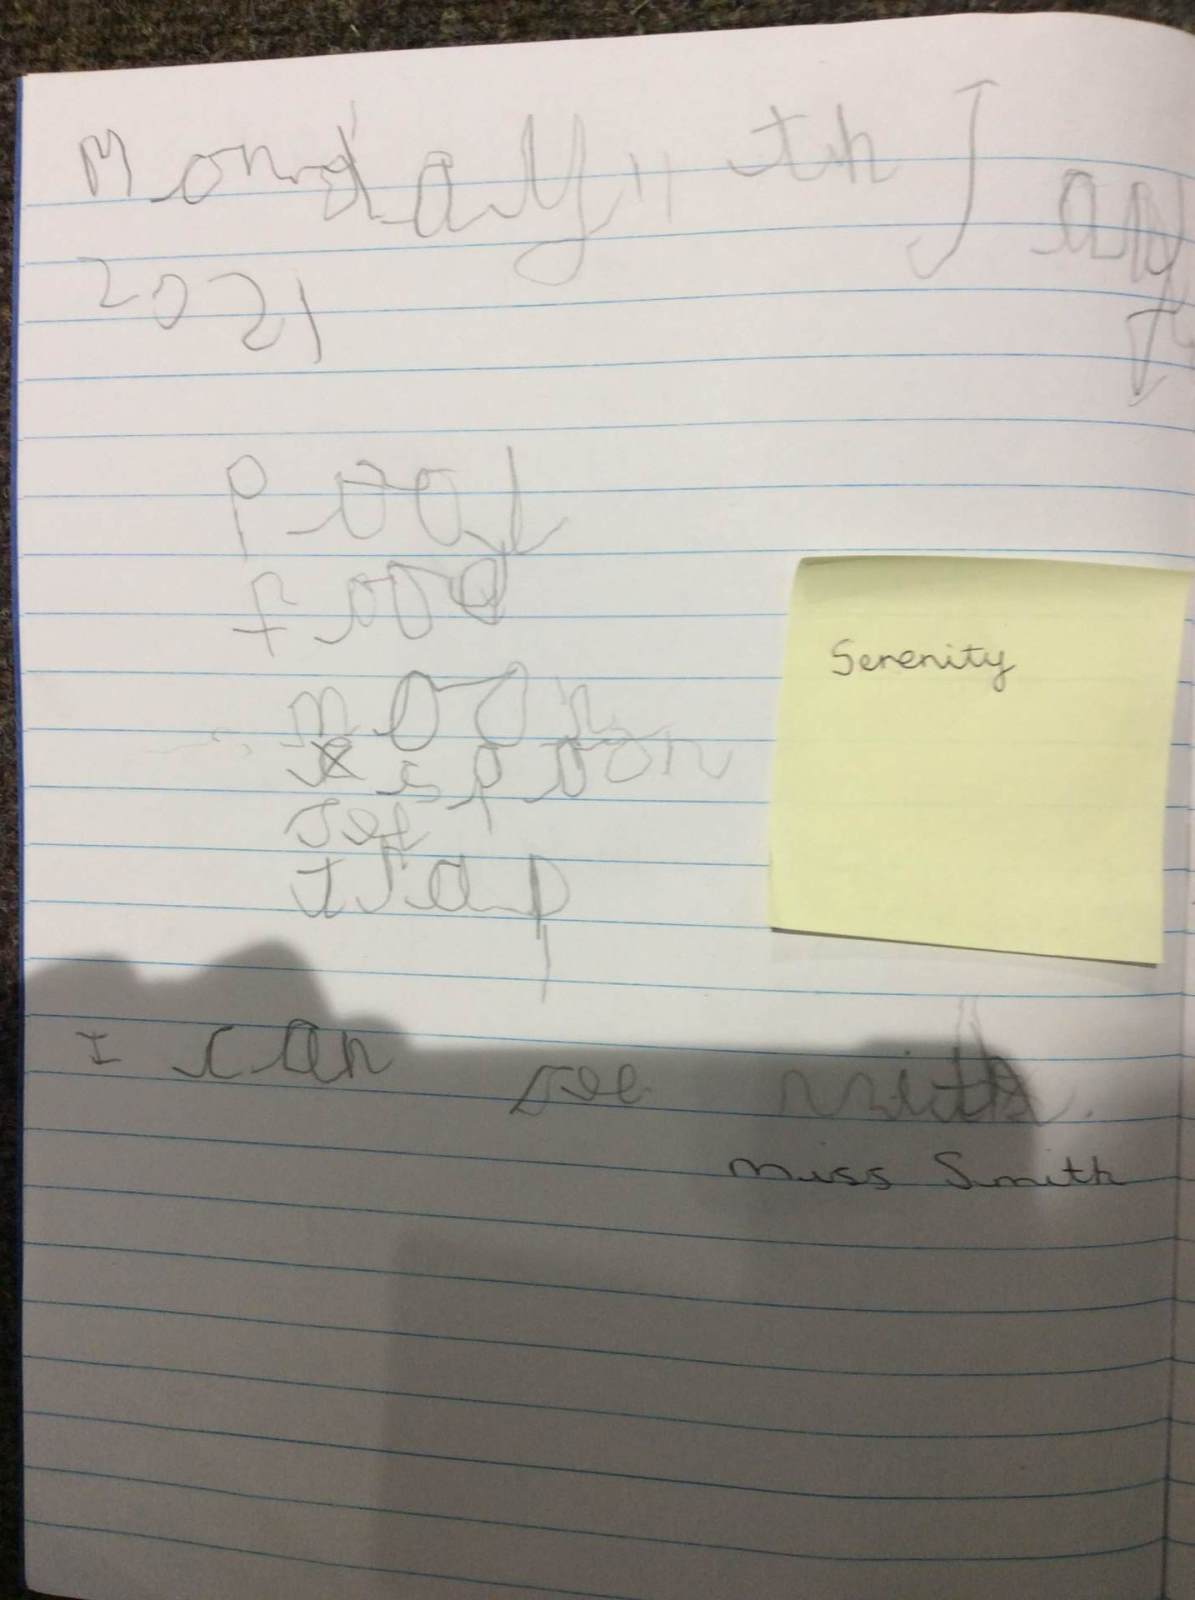 Monday 11th Jany
2021
pool
food
moon
spoon
Jet
trap
Serenity
I can see with
Miss Smith